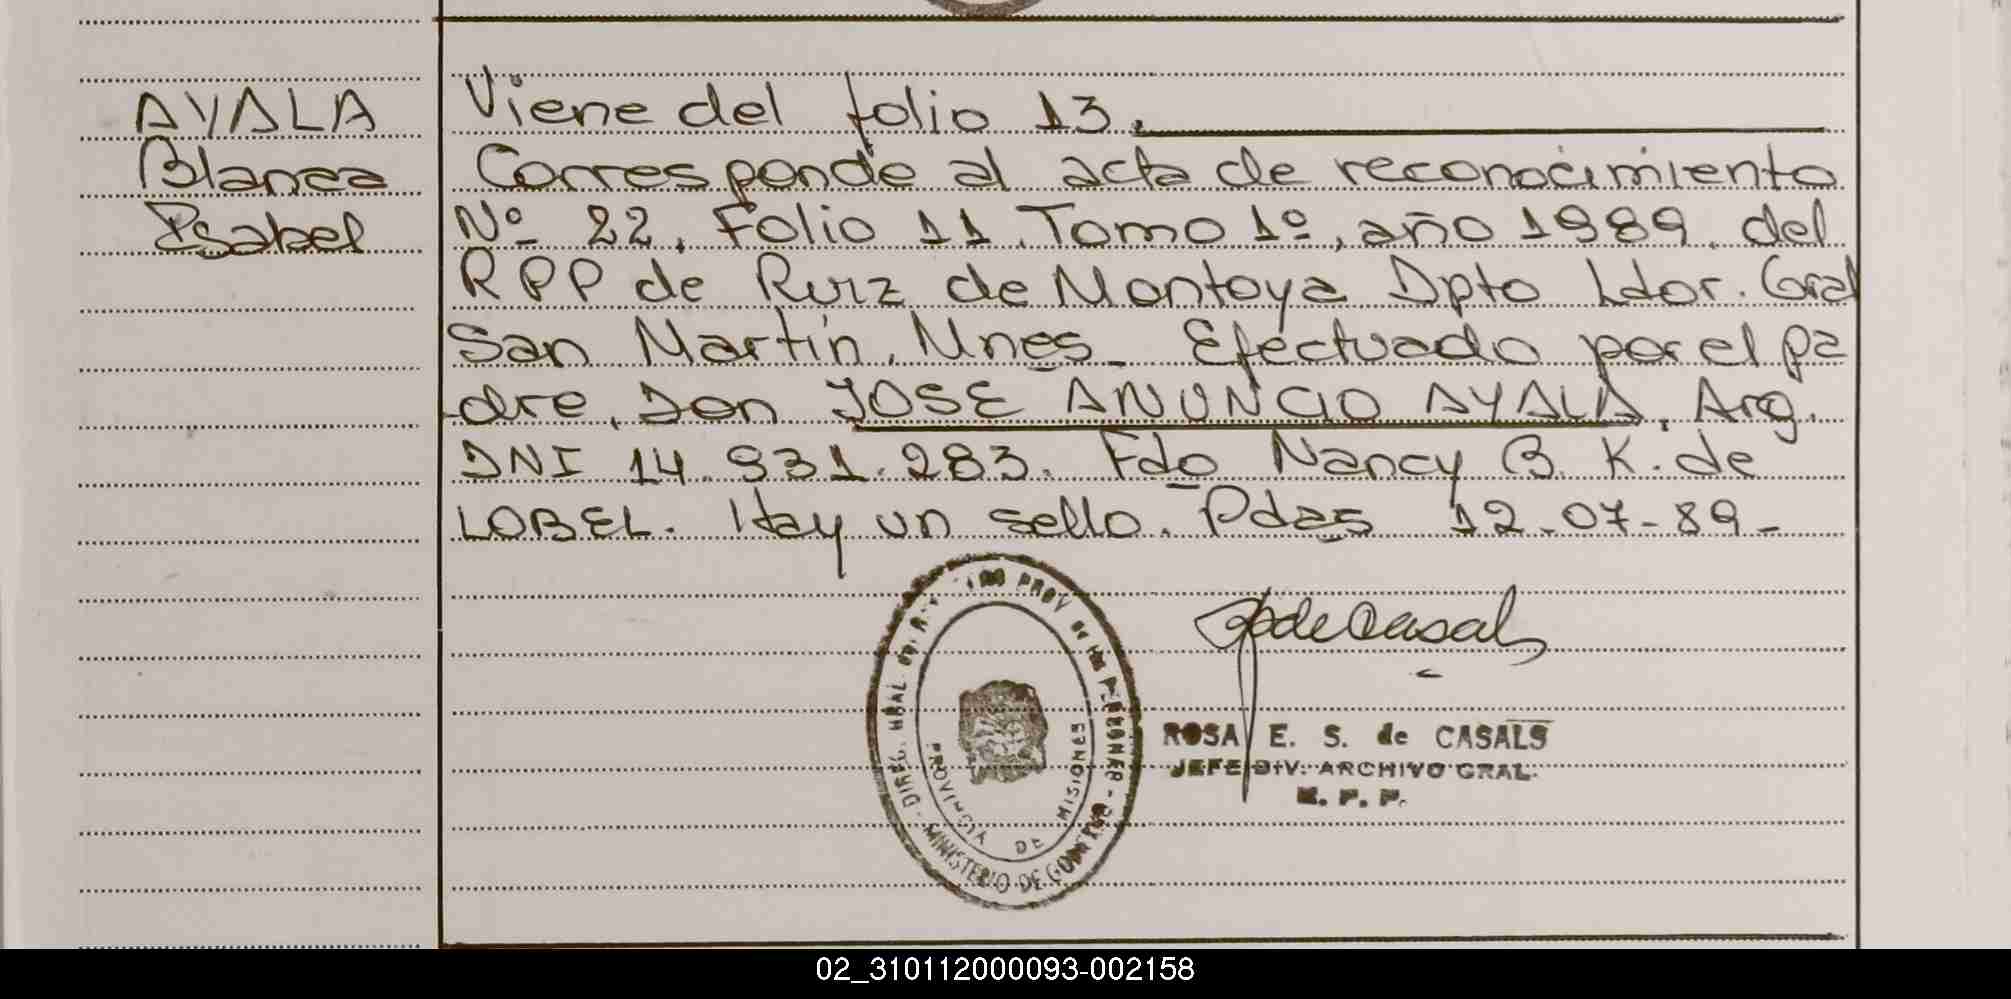 AYALA
Blanca
Isabel
Viene del folio 13.
Corresponde al acta de reconocimiento
Nº 22, Folio 11, Tomo 1º, año 1989, del
RPP de Ruiz de Montoya Dpto Ldor. Gral
San Martín, Mnes_ Efectuado por el pa
dre, Don JOSE ANUNCIO AYALA, Arg.
DNI 14.931.283. Fdo Nancy B. K. de
LOBEL. Hay un sello. Pdas 12-07-89-
de Casals
PROV DE LAS PERSONAS - MINISTERIO DE GOBIERNO - DIREC. GRAL. DEL
PROVINCIA DE MISIONES
ROSA E. S. de CASALS
JEFE DIV. ARCHIVO GRAL.
R. P. P.
02_310112000093-002158